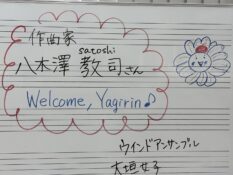 作曲家
satoshi
八木澤 教司さん
Welcome, Yagirin♪
ウインドアンサンブル
大垣女子